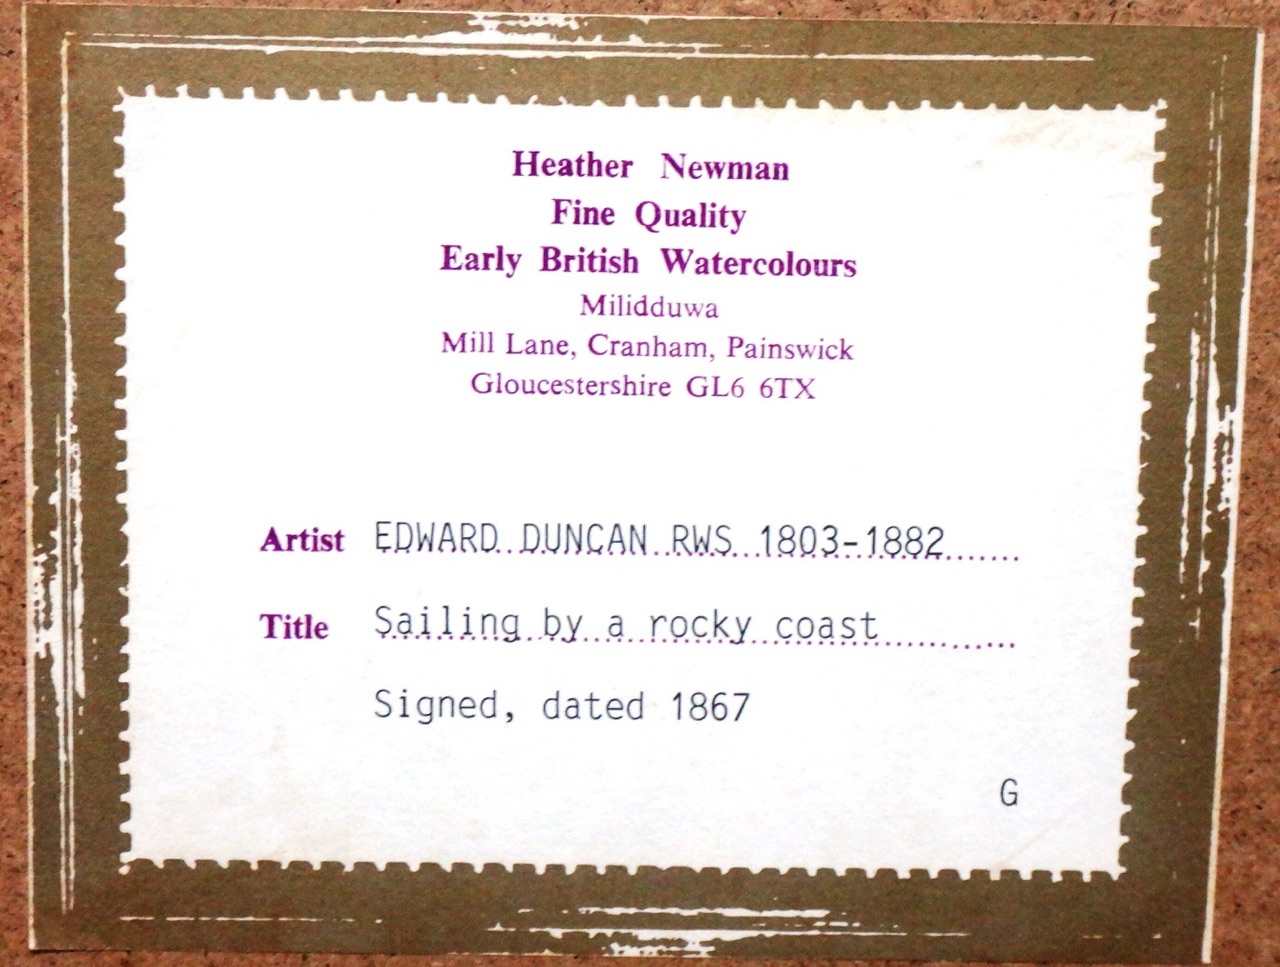 Heather Newman
Fine Quality
Early British Watercolours
Milidduwa
Mill Lane, Cranham, Painswick
Gloucestershire GL6 6TX
Artist EDWARD DUNCAN RWS 1803-1882
Title Sailing by a rocky coast
Signed, dated 1867
G